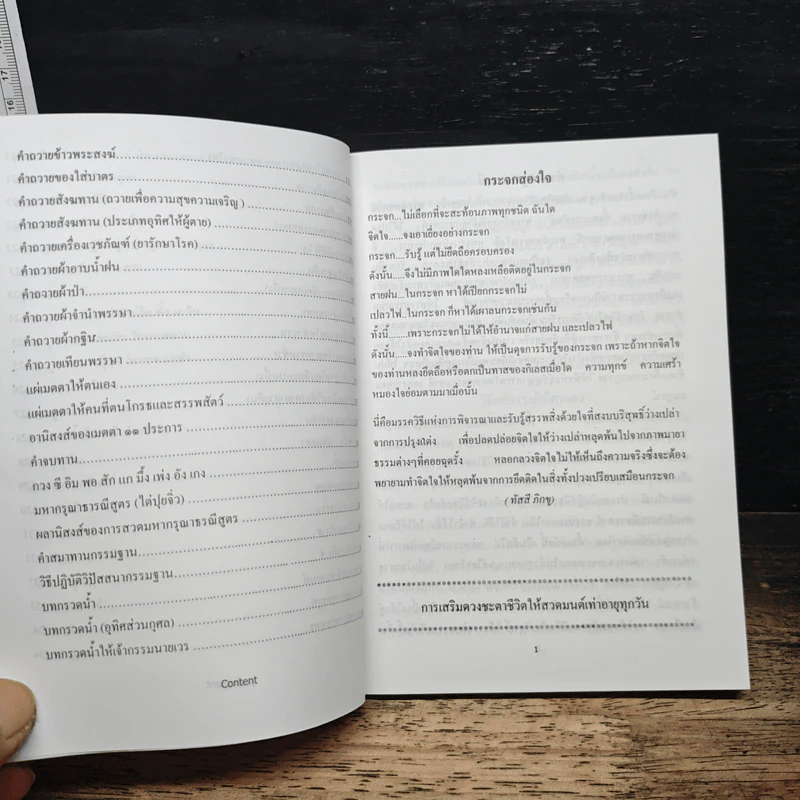 17
16
คำถวายข้าวพระสงฆ์
คำถวายของใส่บาตร
คำถวายสังฆทาน (ถวายเพื่อความสุขความเจริญ )
คำถวายสังฆทาน (ประเภทอุทิศให้ผู้ตาย)
คำถวายเครื่องเวชภัณฑ์ (ยารักษาโรค)
คำถวายผ้าอาบน้ำฝน
คำถวายผ้าป่า
คำถวายผ้าจำนำพรรษา
คำถวายผ้ากฐิน
คำถวายเทียนพรรษา
แผ่เมตตาให้ตนเอง
แผ่เมตตาให้คนที่ตนโกรธและสรรพสัตว์
อานิสงส์ของเมตตา ๑๑ ประการ
คำจบทาน
กวง ซี อิม พอ สัก แก มึ้ง เพ่ง อัง เกง
มหากรุณาธารณีสูตร (ไต่ปุยจิ่ว)
ผลานิสงส์ของการสวดมหากรุณาธรณีสูตร
คำสมาทานกรรมฐาน
วิธีปฏิบัติวิปัสสนากรรมฐาน
บทกรวดน้ำ
บทกรวดน้ำ (อุทิศส่วนกุศล)
บทกรวดน้ำให้เจ้ากรรมนายเวร
Content
กระจกส่องใจ
กระจก...ไม่เลือกที่จะสะท้อนภาพทุกชนิด ฉันใด
จิตใจ......จงเอาเยี่ยงอย่างกระจก
กระจก....รับรู้ แต่ไม่ยึดถือครอบครอง
ดังนั้น.....จึงไม่มีภาพใดใดหลงเหลือติดอยู่ในกระจก
สายฝน...ในกระจก หาได้เปียกกระจกไม่
เปลวไฟ..ในกระจก ก็หาได้เผาลนกระจกเช่นกัน
ทั้งนี้........เพราะกระจกไม่ได้ให้อำนาจแก่สายฝน และเปลวไฟ
ดังนั้น.....จงทำจิตใจของท่าน ให้เป็นดุจการรับรู้ของกระจก เพราะถ้าหากจิตใจ
ของท่านหลงยึดถือหรือตกเป็นทาสของกิเลสเมื่อใด ความทุกข์ ความเศร้า
หมองใจย่อมตามมาเมื่อนั้น
นี่คือมรรควิธีแห่งการพิจารณาและรับรู้สรรพสิ่งด้วยใจที่สงบบริสุทธิ์ว่างเปล่า
จากการปรุงแต่ง เพื่อปลดปล่อยจิตใจให้ว่างเปล่าหลุดพ้นไปจากภาพมายา
ธรรมต่างๆที่คอยฉุดรั้ง หลอกลวงจิตใจไม่ให้เห็นถึงความจริงซึ่งจะต้อง
พยายามทำจิตใจให้หลุดพ้นจากการยึดติดในสิ่งทั้งปวงเปรียบเสมือนกระจก
(ทัสสี ภิกขุ)
การเสริมดวงชะตาชีวิตให้สวดมนต์เท่าอายุทุกวัน
1